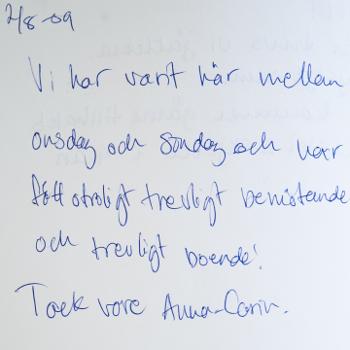 2/8-09
Vi har varit här mellan
onsdag och söndag och har
fått otroligt trevligt bemötande
och trevligt boende!
Tack vare Anna-Carin.